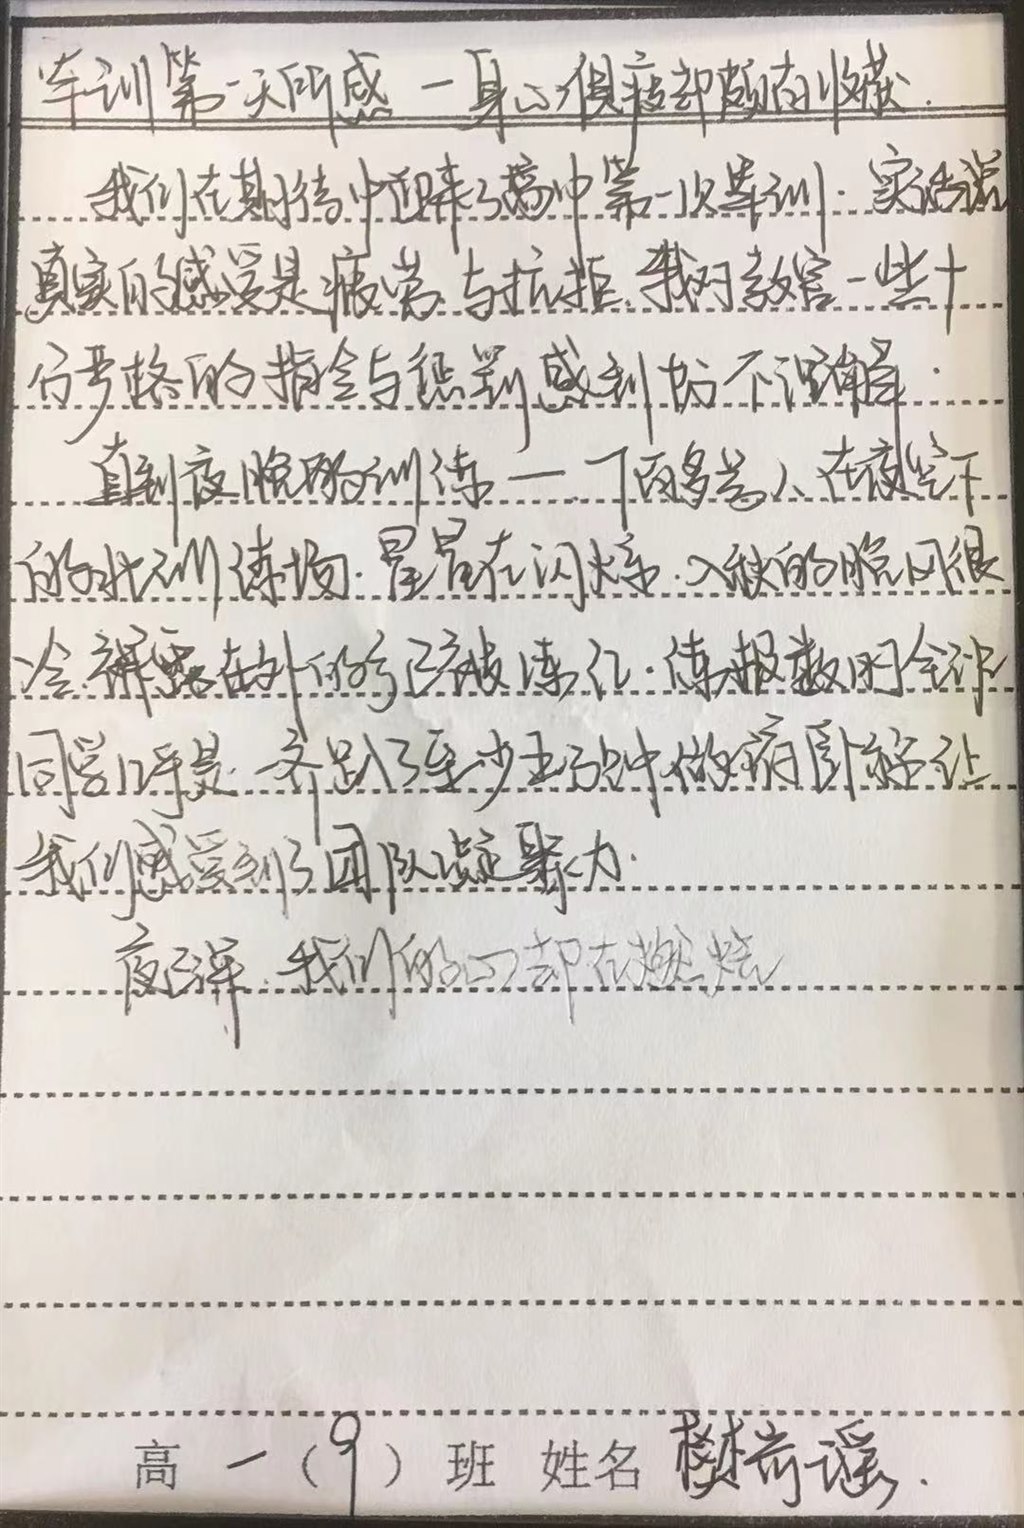 军训第一天所感一身心俱疲却颇有收获.
我们在期待中迎来了高中第一次军训.实话说
真实的感受是疲劳与抗拒.我对教官一些十
分严格的指令与惩罚感到十分不理解.
直到夜晚的训练一一百多号人在夜空下
的训练场.星星在闪烁.入秋的晚风很
冷.裸露在外的手已被冻红.练报数时全体
同学几乎是一齐趴了至少五分钟.做
我们感受到了团队凝聚力.
夜已深.我们的心却在燃烧
高一(9)班 姓名 樊奇谣.